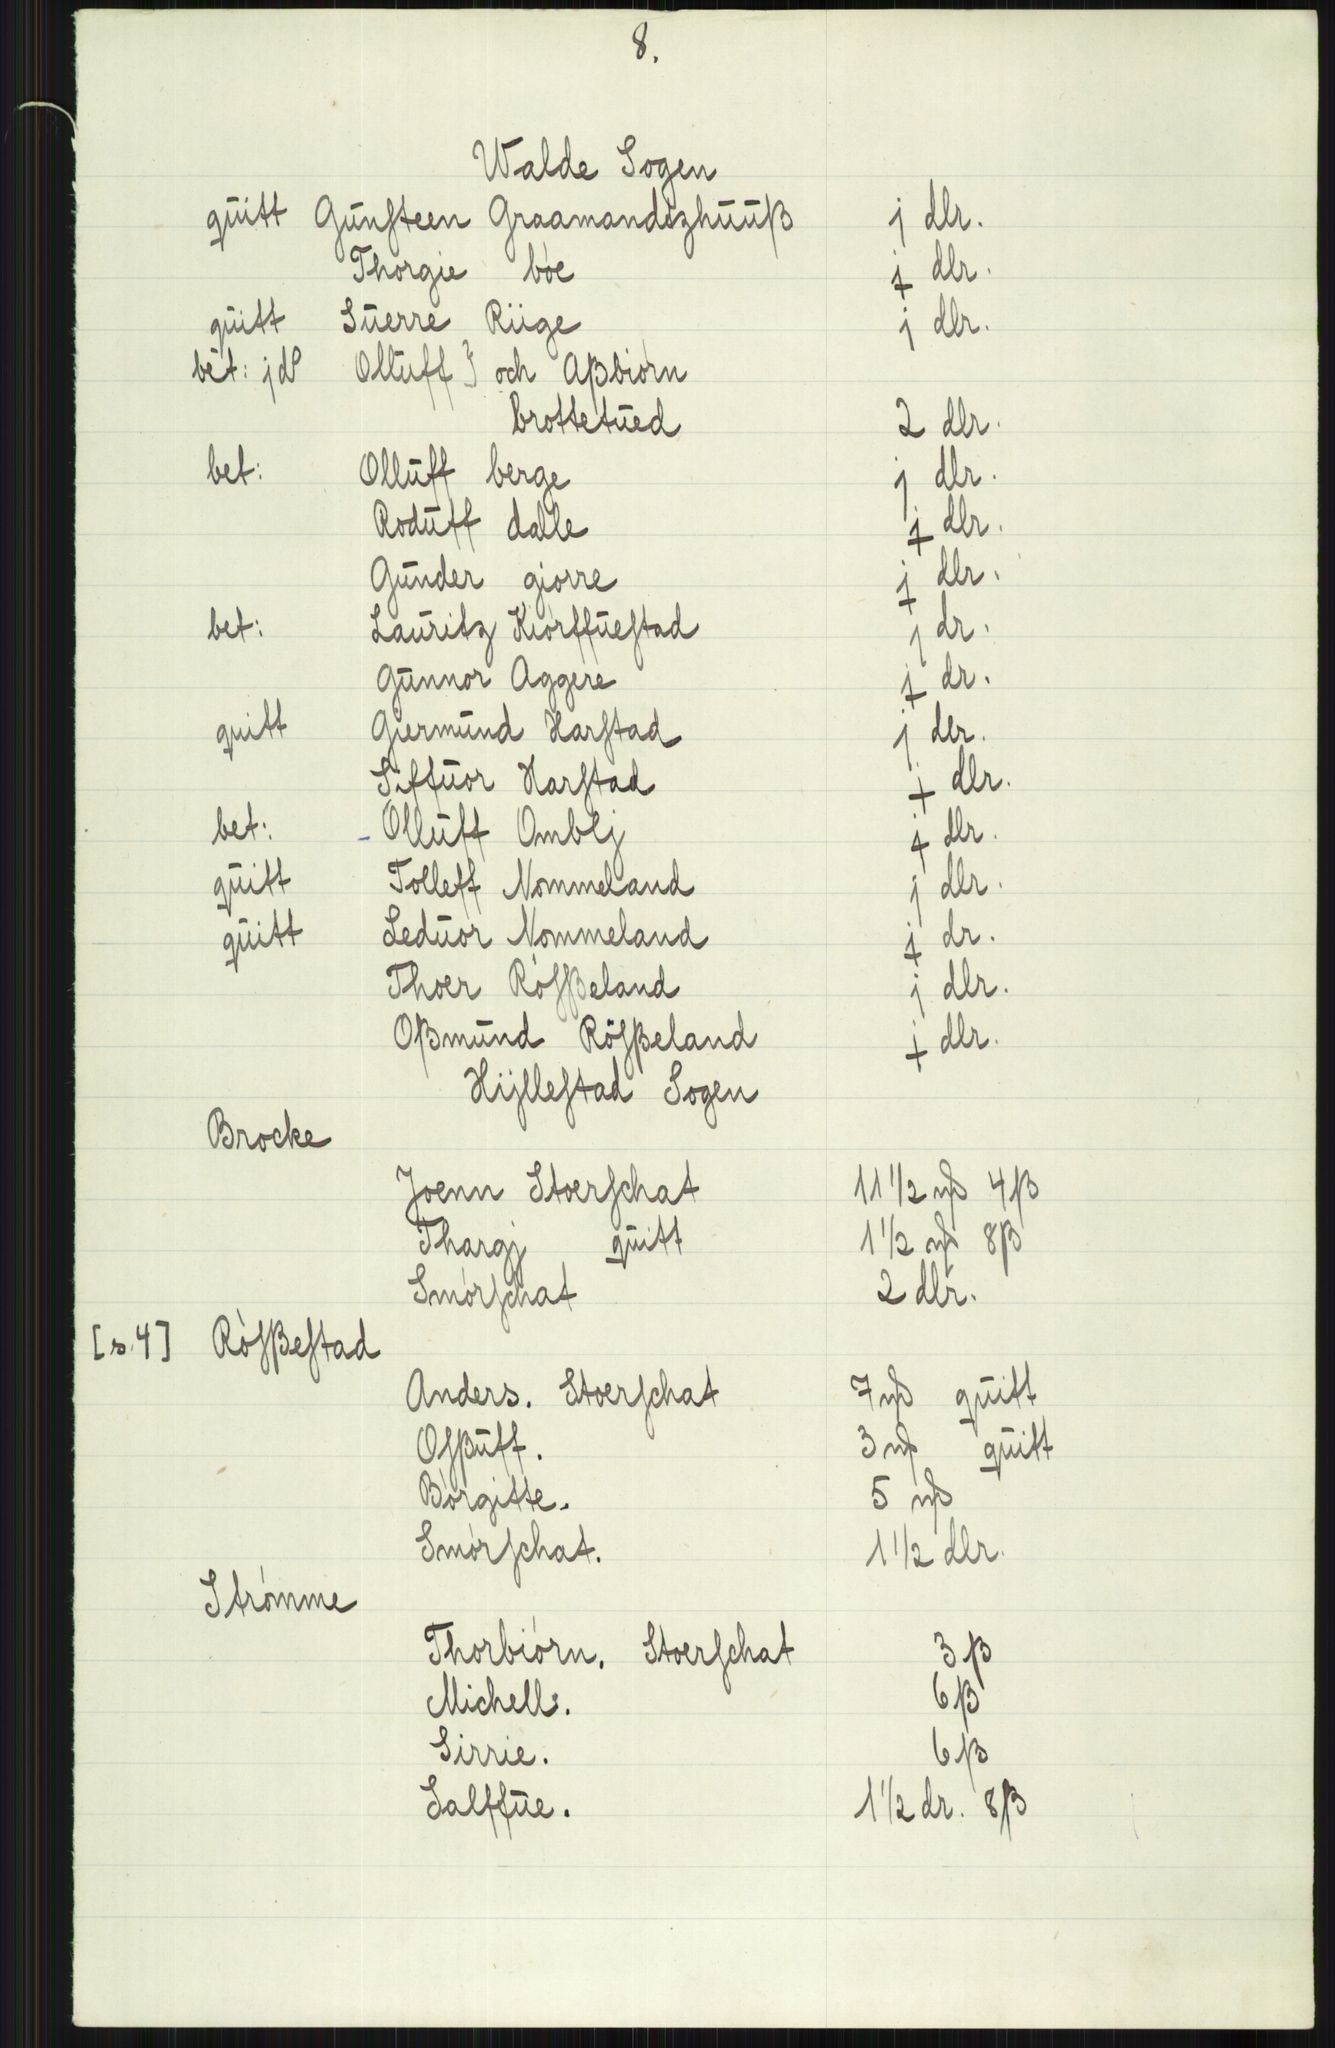 8.
Walde Sogen
quitt Gunsteen Graamandszhuuß j dlr.
Thorgie bóe j dlr.
quitt Suerre Riige j dlr.
bet: j dl Olluff } och Aßbiórn
brottetued 2 dlr.
bet: Olluff berge j dlr.
Roduff dalle j dlr.
Gunder giorre j dlr.
bet: Lauritz Kiórffuestad j dr.
Gunnor Aggere j dr.
quitt Giermund Harstad j dlr.
Siffuor Harstad j dlr.
bet: Olluff Omblj j dlr.
quitt Tolleff Nommeland j dlr.
quitt Leduor Nommeland j dr.
Thoer Rósßeland j dlr.
Oßmund Rösßeland j dlr.
Hÿllestad Sogen
Brocke
Joenn Stoerschat 11 1/2 mß 4 ß
Thargj quitt 1 1/2 mß 8 ß
Smórschat 2 dlr.
[s. 4] Rósßestad
Anders. Stoerschat 7 mß quitt
Osßuff. 3 mß quitt
Börgitte. 5 mß
Smórschat. 1 1/2 dlr.
Strómme
Thorbiórn. Stoerschat 3 ß
Michell. 6 ß
Sirrie. 6 ß
Salffue. 1 1/2 dr. 8 ß